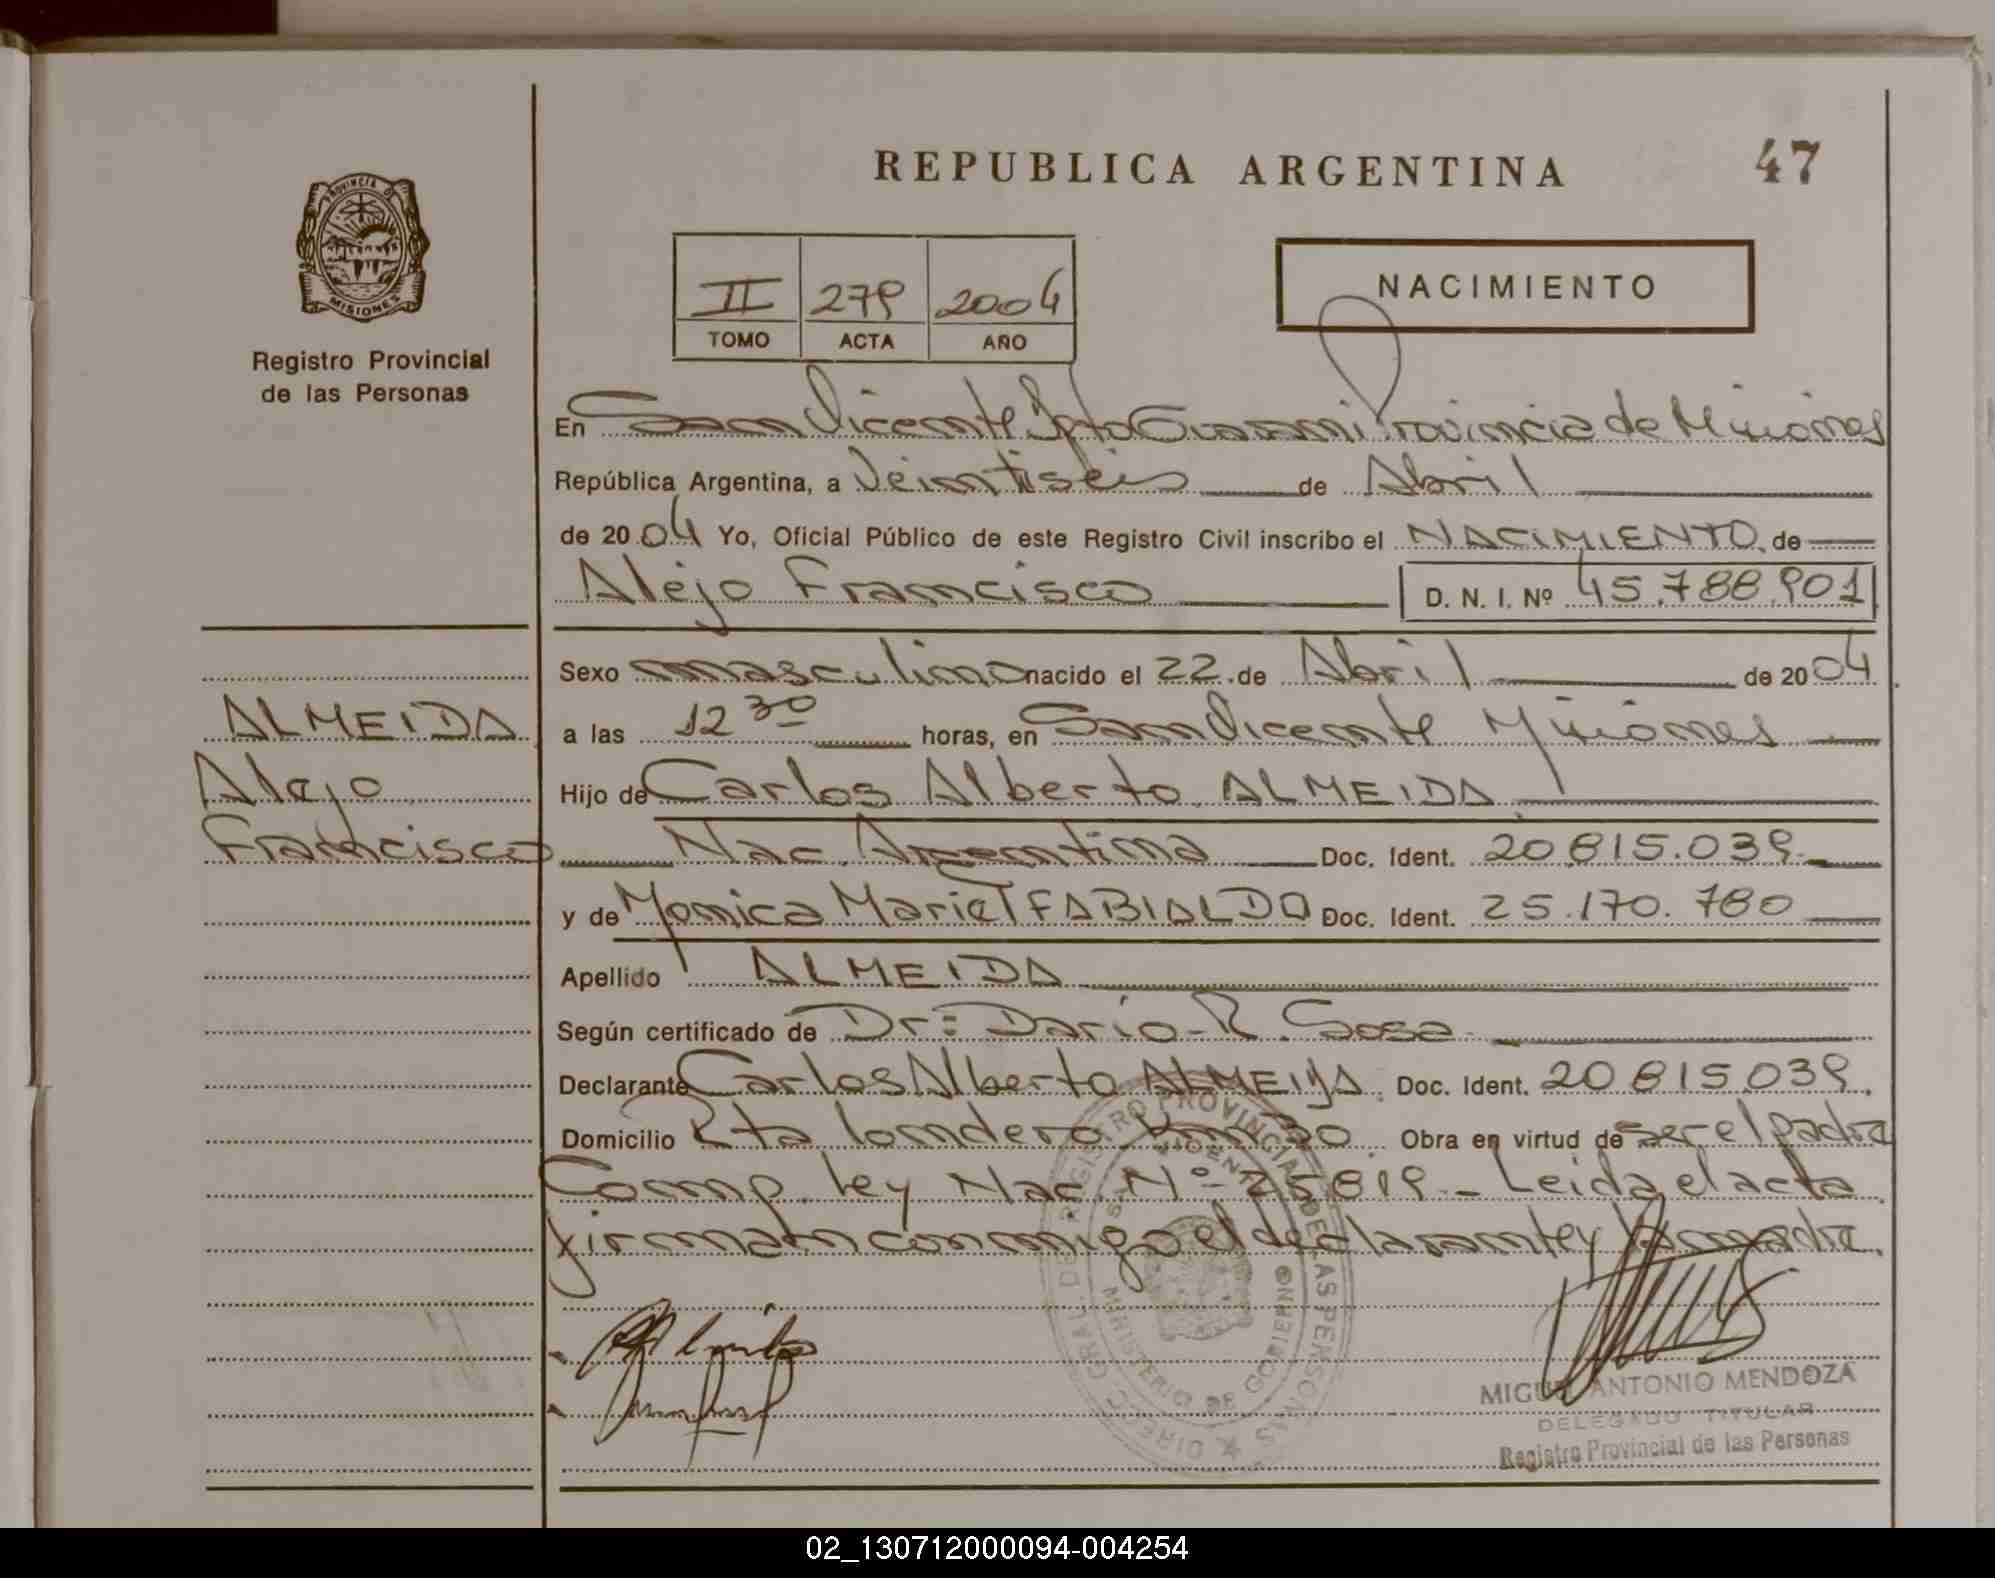 REPUBLICA ARGENTINA
47
PROVINCIA DE
MISIONES
Registro Provincial
de las Personas
II 279 2004
TOMO ACTA AÑO
NACIMIENTO
En San Vicente Dpto Guarani Provincia de Misiones
República Argentina, a Veintiséis de Abril
de 2004 Yo, Oficial Público de este Registro Civil inscribo el NACIMIENTO de
Alejo Francisco D. N. I. Nº 45.788.901
Sexo masculino nacido el 22 de Abril de 2004
ALMEIDA
Alejo
Francisco
a las 12 30 horas, en San Vicente Misiones
Hijo de Carlos Alberto ALMEIDA
Nac. Argentina Doc. Ident. 20.815.039
y de Monica Mariel FABIALDO Doc. Ident. 25.170.780
Apellido ALMEIDA
Según certificado de Dr: Darío R. Sosa
Declarante Carlos Alberto ALMEIDA Doc. Ident. 20 815 039
Domicilio Rta londero Obra en virtud de ser el padre
Comp. ley Nac. Nº 25819 - Leida el acta
firman conmigo el declarante y la madre.
DIREC. GRAL. DE REGISTRO PROVINCIAL DE LAS PERSONAS
MINISTERIO DE GOBIERNO
MIGUEL ANTONIO MENDOZA
DELEGADO TITULAR
Registro Provincial de las Personas
02_130712000094-004254